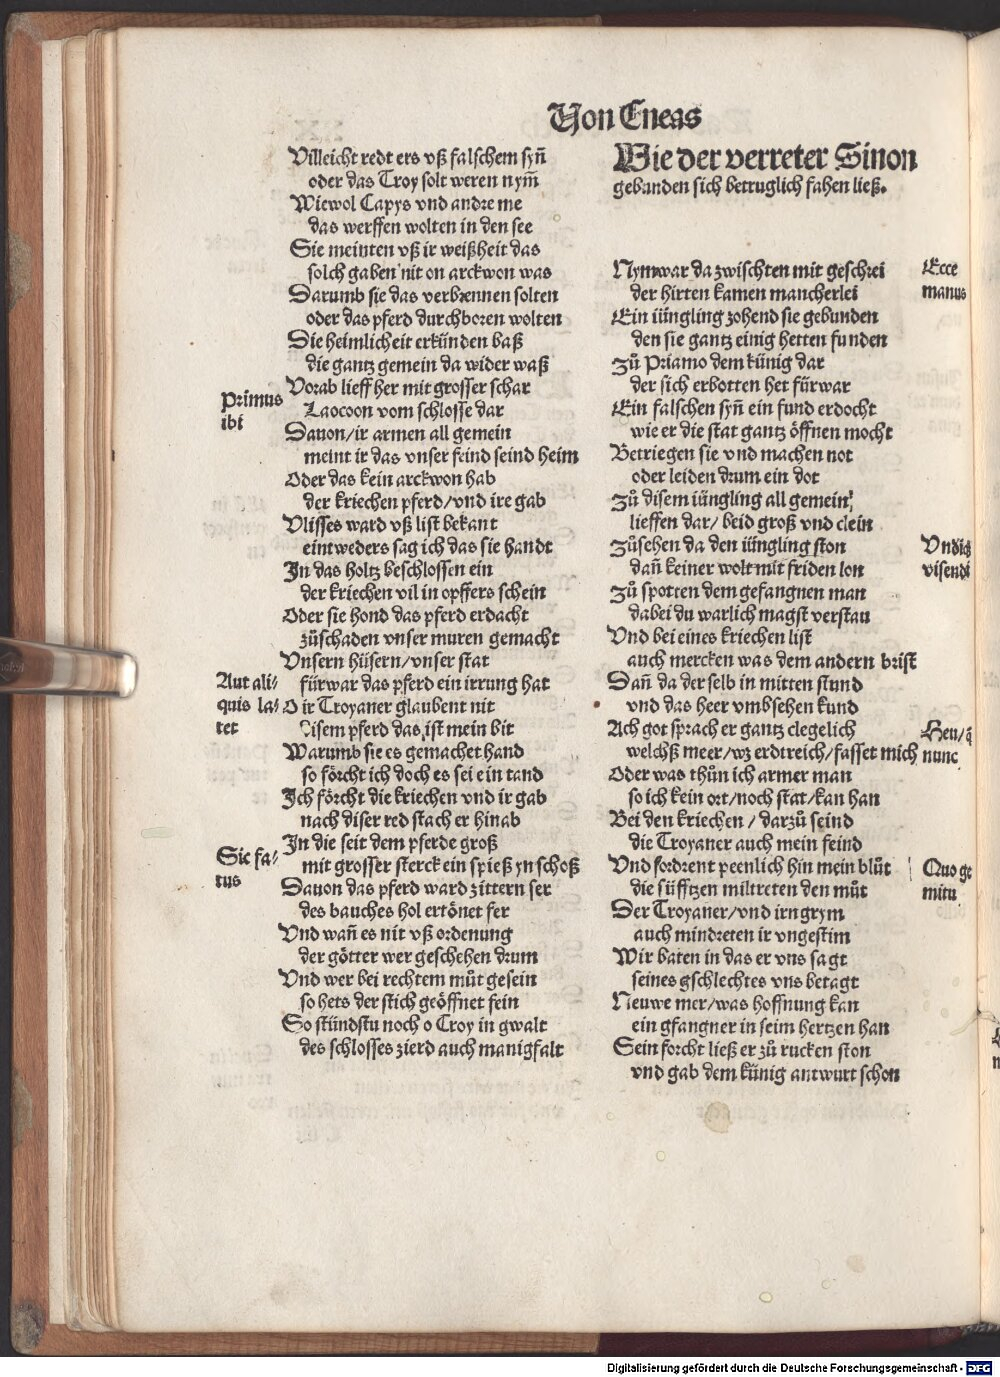 Von Eneas
Villeicht redt ers vß falschem syn̄
oder das Troy solt weren nym̄
Wiewol Capys vnd andre me
das werffen wolten in den see
Sie meinten vß ir weißheit das
solch gaben nit on arckwon was
Darumb sie das verbrennen solten
oder das pferd durchboren wolten
Die heimlicheit erkünden baß
die gantz gemein da wider waß
Vorab lieff her mit grosser schar
Primus
ibi
Laocoon vom schlosse dar
Dauon/ir armen all gemein
meint ir das vnser feind seind heim
Oder das kein arckwon hab
der kriechen pferd/vnd ire gab
Vlisses ward vß list bekant
eintweders sag ich das sie handt
In das holtz beschlossen ein
der kriechen vil in opffers schein
Oder sie hond das pferd erdacht
zůschaden vnser muren gemacht
Vnsern hüsern/vnser stat
Aut ali⸗
quis la⸗
tet
fürwar das pferd ein irrung hat
O ir Troyaner glaubent nit
Disem pferd das ist mein bit
Warumb sie es gemachet hand
so förcht ich doch es sei ein tand
Ich förcht die kriechen vnd ir gab
nach diser red stach er hinab
In die seit dem pferde groß
Sic fa⸗
tus
mit grosser sterck ein spieß yn schoß
Dauon das pferd ward zittern ser
des bauches hol ertönet fer
Vnd wan̄ es nit vß ordenung
der götter wer geschehen drum
Vnd wer bei rechtem můt gesein
so hets der stich geöffnet fein
So stündstu noch o Troy in gwalt
des schlosses zierd auch manigfalt
Wie der verreter Sinon
gebunden sich betruglich fahen ließ.
Nymwar da zwischten mit geschrei
Ecce
manus
der hirten kamen mancherlei
Ein iüngling zohend sie gebunden
den sie gantz einig hetten funden
Zů Priamo dem künig dar
der sich erbotten het fürwar
Ein falschen syn̄ ein fund erdocht
wie er die stat gantz öffnen mocht
Betriegen sie vnd machen not
oder leiden drum ein dot
Zů disem iüngling all gemein
lieffen dar/ beid groß vnd clein
Zůsehen da den iüngling ston
Vndiq̄
visendi
dan̄ keiner wolt mit friden lon
Zů spotten dem gefangnen man
dabei du warlich magst verstan
Vnd bei eines kriechen list
auch mercken was dem andern brist
Dan̄ da der selb in mitten stund
vnd das heer vmbsehen kund
Ach got sprach er gantz clegelich
Heu/q̄
nunc
welchß meer/wz erdtreich/fasset mich
Oder was thůn ich armer man
so ich kein ort/noch stat/kan han
Bei den kriechen / darzů seind
die Troyaner auch mein feind
Vnd fordrent peenlich hin mein blůt
Quo ge
mitu
die süfftzen miltreten den můt
Der Troyaner/vnd irn grym
auch mindreten ir vngestim
Wir baten in das er vns sagt
seines gschlechtes vns betagt
Neuwe mer/was hoffnung kan
ein gfangner in seim hertzen han
Sein forcht ließ er zů rucken ston
vnd gab dem künig antwurt schon
Digitalisierung gefördert durch die Deutsche Forschungsgemeinschaft - DFG